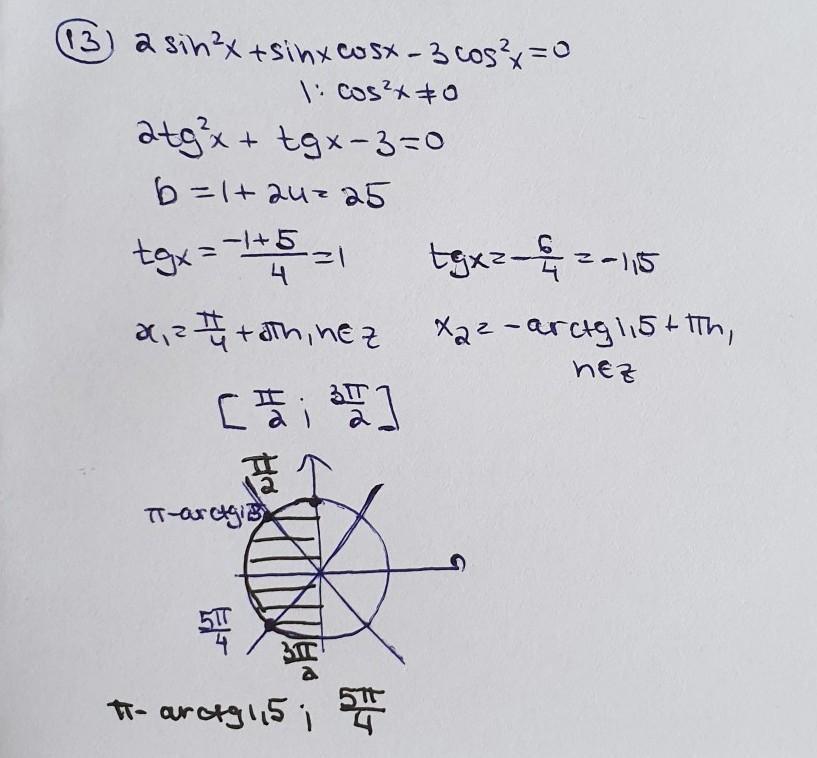 (13) 2 sin²x + sinx cosx - 3 cos²x = 0
|: cos²x ≠ 0
2tg²x + tgx - 3 = 0
D = 1 + 24 = 25
tgx = \frac{-1+5}{4} = 1    tgx = -\frac{6}{4} = -1,5
x₁ = \frac{π}{4} + πn, n∈z    x₂ = -arctg1,5 + πn,
n∈z
[\frac{π}{2} ; \frac{3π}{2}]
\frac{π}{2}
π-arctg1,5
\frac{5π}{4}
\frac{3π}{2}
π- arctg1,5 ; \frac{5π}{4}